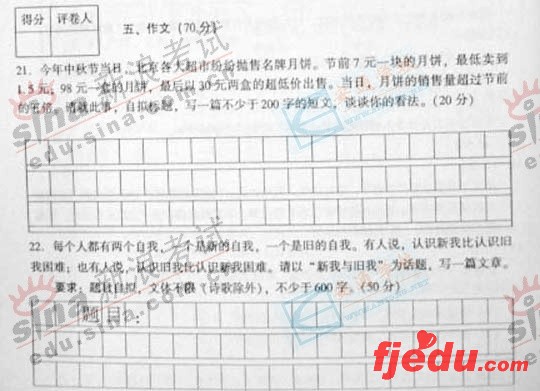 得分 评卷人
五、作文(70分)
21. 今年中秋节当日,北京各大超市纷纷抛售名牌月饼。节前7元一块的月饼,最低卖到
1.5元;98元一盒的月饼,最后以30元两盒的超低价出售。当日,月饼的销售量超过节前
的五倍。请就此事,自拟标题,写一篇不少于200字的短文,谈谈你的看法。(20分)
22. 每个人都有两个自我,一个是新的自我,一个是旧的自我。有人说,认识新我比认识旧
我困难;也有人说,认识旧我比认识新我困难。请以“新我与旧我”为话题,写一篇文章。
要求:题目自拟,文体不限(诗歌除外),不少于600字。(50分)
题目:
sina 新浪考试
edu.sina.com.cn
fjedu.com